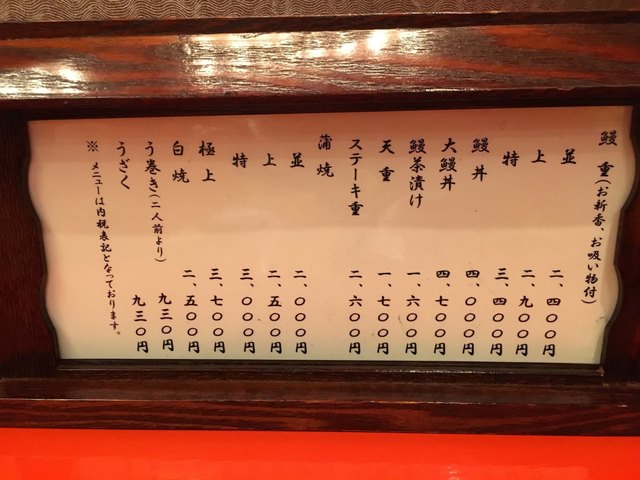 鰻重(お新香、お吸い物付)
並 二、四〇〇円
上 二、九〇〇円
特 三、四〇〇円
鰻丼 四、〇〇〇円
大鰻丼 四、七〇〇円
鰻茶漬け 一、六〇〇円
天重 一、七〇〇円
ステーキ重 二、六〇〇円
蒲焼
並 二、〇〇〇円
上 二、五〇〇円
特 三、〇〇〇円
極上 三、七〇〇円
白焼 二、五〇〇円
う巻き(二人前より) 九三〇円
うざく 九三〇円
※ メニューは内税表記となっております。